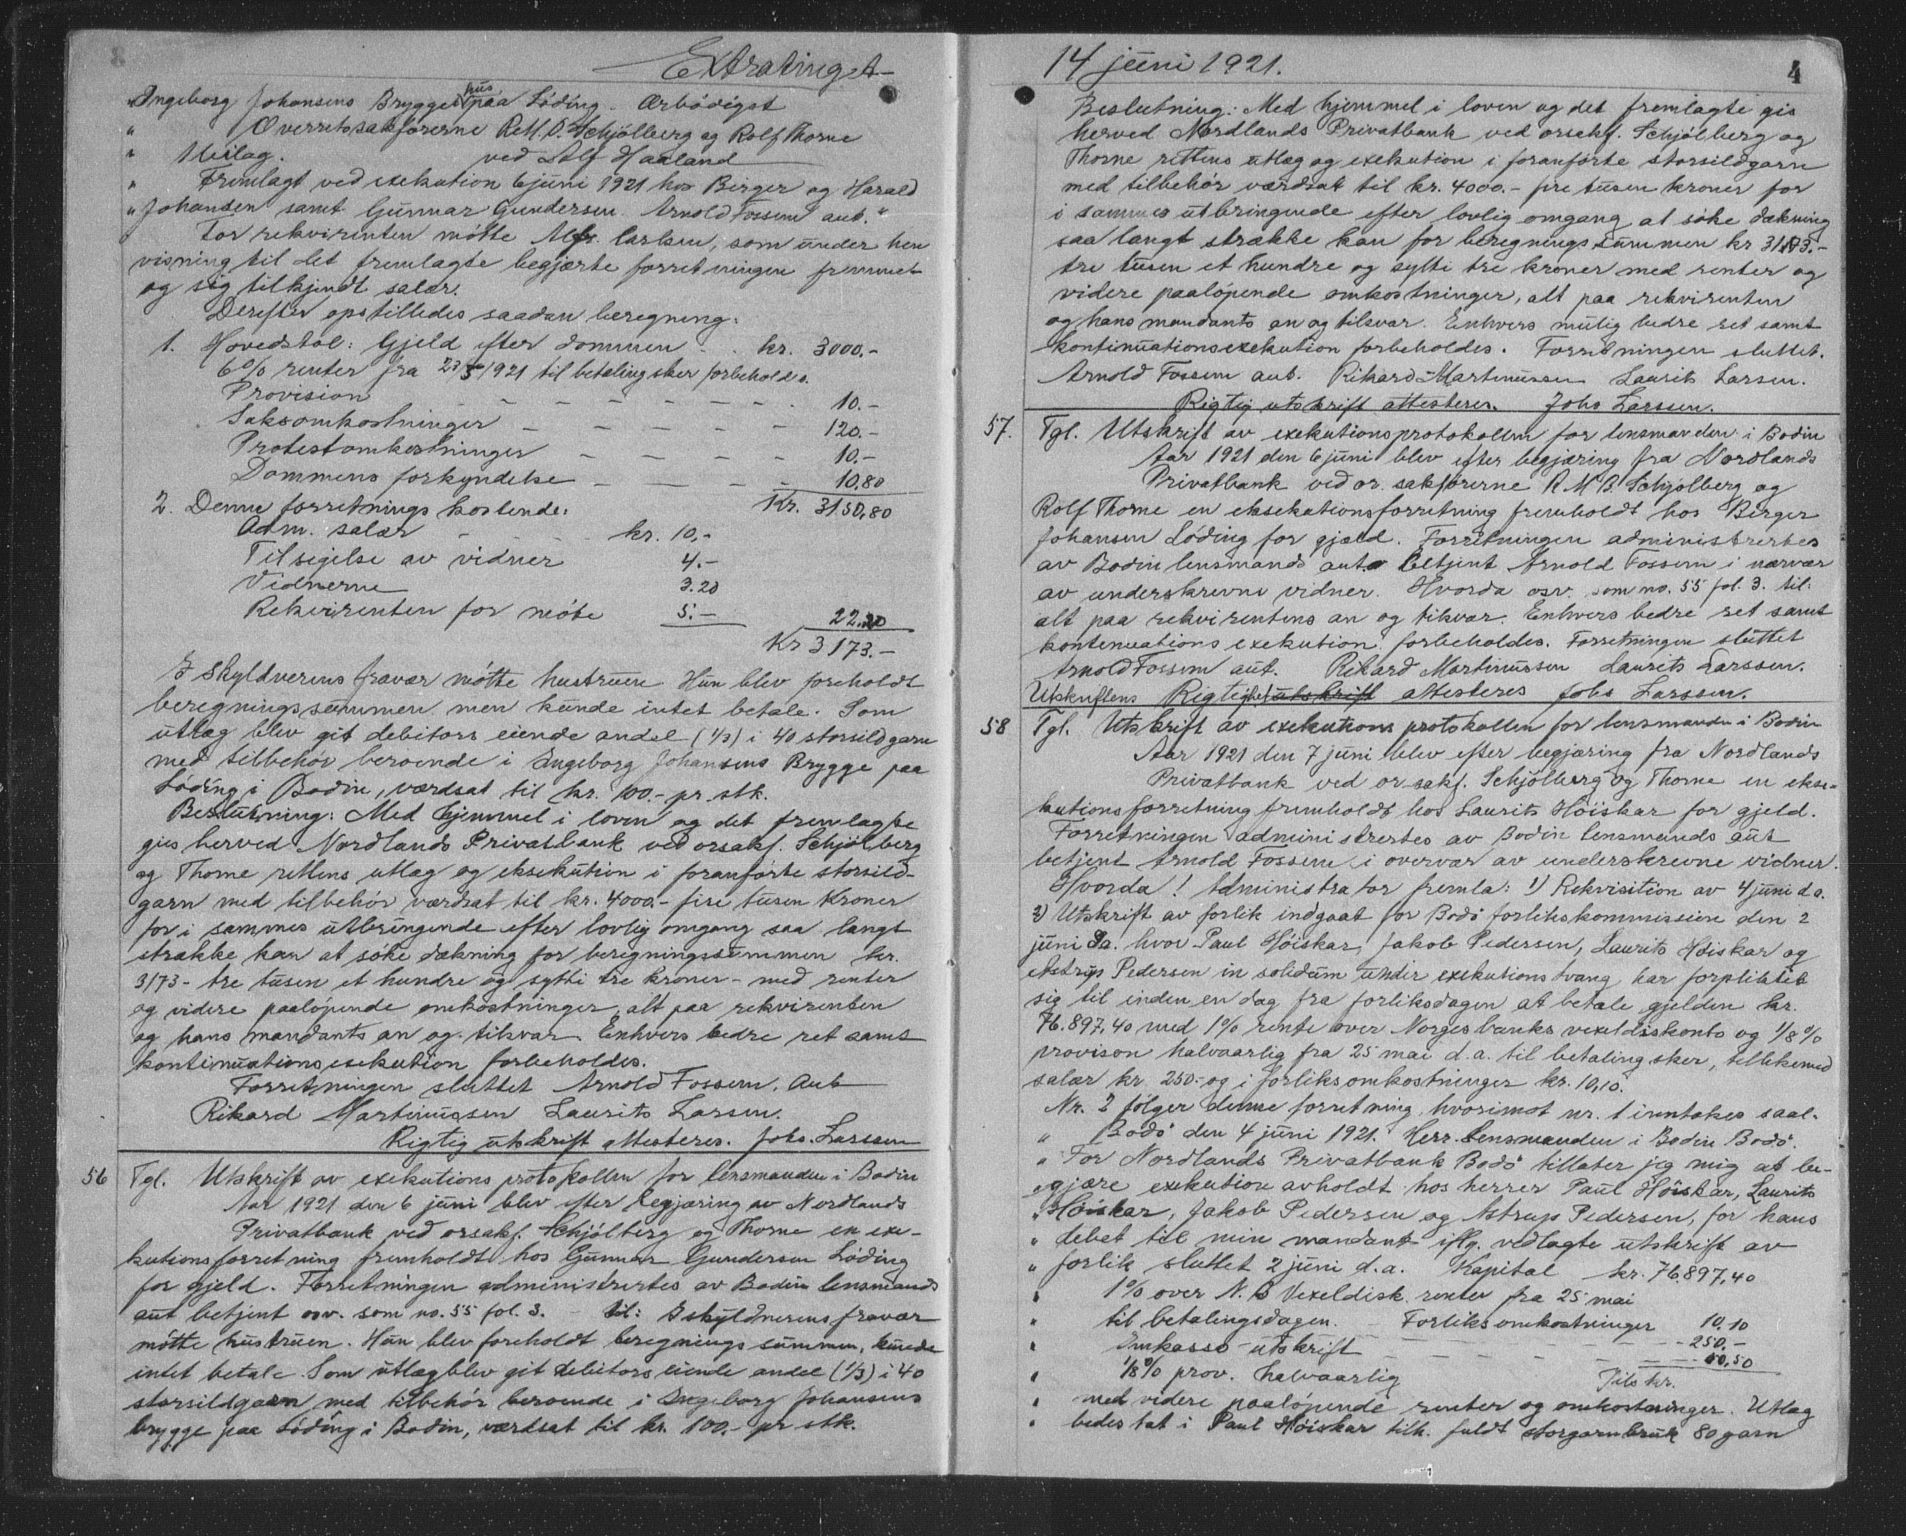 Extratinget
" Ingeborg Johansens Brygge hus paa Löding. Ærbödigst
" Overretssakförerne R. M. B. Schjölberg og Rolf Thorne
" 1 bilag. ved Alf Haaland
" Fremlagt ved exekution 6 juni 1921 hos Birger og Harald
" Johansen samt Gunnar Gundersen. Arnold Fossem aut. "
For rekvirenten mötte Alfr. Carlsen, som under hen
visning til det fremlagte begjærte forretningen fremmet
og sig tilkjendt salær.
Derefter opstilledes saadan beregning:
1. Hovedstol: Gjeld efter dommen - . kr. 3000.-
6% renter fra 23/5 1921 til betaling sker forbeholdes.
Provision - - - - - - - 10.-
Saksomkostninger - - - - - 120.-
Protestomkostninger - - - - 10.-
Dommens forkyndelse - - - - 10,80
Kr. 3150,80
2. Denne forretnings kostende:
Adm. salær - . . . kr. 10,-
Tilsigelse av vidner 4.-
Vidnerne 3.20
Rekvirenten for möte 5.- 22.20
Kr 3173.-
I skyldnerens fravær mötte hustruen. Hun blev foreholdt
beregningssummen men kunde intet betale. Som
utlæg blev git debitors eiende andel (1/3) i 40 storsildgarn
med tilbehör beroende i Ingeborg Johansens Brygge paa
Löding i Bodin, værdsat til kr. 100.- pr stk.
Beslutning: Med hjemmel i loven og det fremlagte
gies herved Nordlands Privatbank ved orsakf. Schjölberg
og Thorne rettens utlæg og eksekution i foranförte storsild-
garn med tilbehör værdsat til kr. 4000.- fire tusen kroner
for i sammes utbringende efter lovlig omgang saa langt
strække kan at söke dækning for beregningssummen kr.
3173- tre tusen et hundre og sytti tre kroner- med renter
og videre paalöpende omkostninger, alt paa rekvirenten
og hans mandants an og tilsvar. Enhvers bedre ret samt
kontinuationsexekution forbeholdes.
Forretningen sluttet Arnold Fossem. Aut
Rikard Martinussen Laurits Larsen.
Rigtig utskrift attesteres. Johs. Larssen
56 Tgl. Utskrift av exekutions protokollen for lensmanden i Bodin
Aar 1921 den 6 juni blev efter begjæring av Nordlands
Privatbank ved orsakf. Schjölberg og Thorne en exe-
kutionsforretning fremholdt hos Gunnar Gundersen Löding
for gjeld. Forretningen administrertes av Bodin lensmands
aut betjent osv. som no. 55 fol. 3. - til: I skyldnerens fravær
mötte hustruen. Hun blev foreholdt beregnings summen, kunde
intet betale. Som utlæg blev git debitors eiende andel (1/3) i 40
storsildgarn med tilbehör beroende i Ingeborg Johansens
brygge paa Löding i Bodin, værdsat til kr. 100.- pr stk.
14 juni 1921. 4
Beslutning: Med hjemmel i loven og det fremlagte gis
herved Nordlands Privatbank ved orsakf. Schjölberg og
Thorne rettens utlæg og exekution i foranförte storsildgarn
med tilbehör værdsat til kr. 4000.- fire tusen kroner for
i sammes utbringende efter lovlig omgang at söke dækning
saa langt strække kan for beregnings summen kr 3173.-
tre tusen et hundre og sytti tre kroner med renter og
videre paalöpende omkostninger, alt paa rekvirenten
og hans mandants an og tilsvar. Enhvers mulig bedre ret samt
kontinuationsexekution forbeholdes. Forretningen sluttet.
Arnold Fossem aut. Rikard Martinussen Laurits Larsen.
Rigtig utskrift attesterer. Johs Larssen.
57. Tgl. Utskrift av exekutionsprotokollen for lensmanden i Bodin
Aar 1921 den 6 juni blev efter begjæring fra Nordlands
Privatbank ved or. sakförerne R M B. Schjölberg og
Rolf Thorne en eksekutionsforretning fremholdt hos Birger
Johansen Löding for gjæld. Forretningen administrertes
av Bodin lensmands aut. betjent Arnold Fossem i nærvær
av underskrevne vidner. Hvorda osv. som no. 55 fol. 3. til:
alt paa rekvirentens an og tilsvar. Enhvers bedre ret samt
kontinuations exekution forbeholdes. Forretningen sluttet
Arnold Fossem aut. Rikard Martinussen Laurits Larssen.
Utskriftens Rigtighet utskrift attesteres Johs Larssen.
58 Tgl. Utskrift av exekutions protokollen for lensmanden i Bodin
Aar 1921 den 7 juni blev efter begjæring fra Nordlands
Privatbank ved or sakf. Schjölberg og Thorne en ekse-
kutionsforretning fremholdt hos Laurits Höiskar for gjeld.
Forretningen administrertes av Bodin lensmands aut
betjent Arnold Fossem i overvær av underskrevne vidner.
Hvorda! Administrator fremla: 1) Rekvisition av 4 juni d.a.
2) Utskrift av forlik indgaat for Bodö forlikskommission den 2
juni d.a. hvor Paul Höiskar, Jakob Pedersen, Laurits Höiskar og
Astrup Pedersen in solidum under exekutionstvang har forpliktet
sig til inden en dag fra forliksdagen at betale gjelden kr.
76.897,40 med 1% rente over Norges banks vexeldiskonto og 1/8 %
provison halvaarlig fra 25 mai d.a. til betaling sker, tillikemed
salær kr. 250.- og i forliksomkostninger kr. 10,10.
Nr. 2 fölger denne forretning, hvorimot nr. 1 inntakes saal.
" Bodö den 4 juni 1921. Herr. lensmanden i Bodin Bodö.
" For Nordlands Privatbank Bodö tillater jeg mig at be-
" gjære exekution avholdt hos herrer Paul Höiskar, Laurits
" Höiskar, Jakob Pedersen og Astrup Pedersen, for hans
" debet til min mandant iflg. vedlagte utskrift av
" forlik sluttet 2 juni d.a. Kapital kr. 76,897,40
" 1% over N. B Vexeldisk. renter fra 25 mai
" til betalingsdagen. - Forliksomkostninger 10,10
" Inkasso utskrift - - - - - - 250.-
" 1/8 % prov. halvaarlig Tils kr.
" med videre paalöpende renter og omkostninger. Utlæg
" bedes tat i Paul Höiskar tilh. fuldt storgarnbruk 80 garn